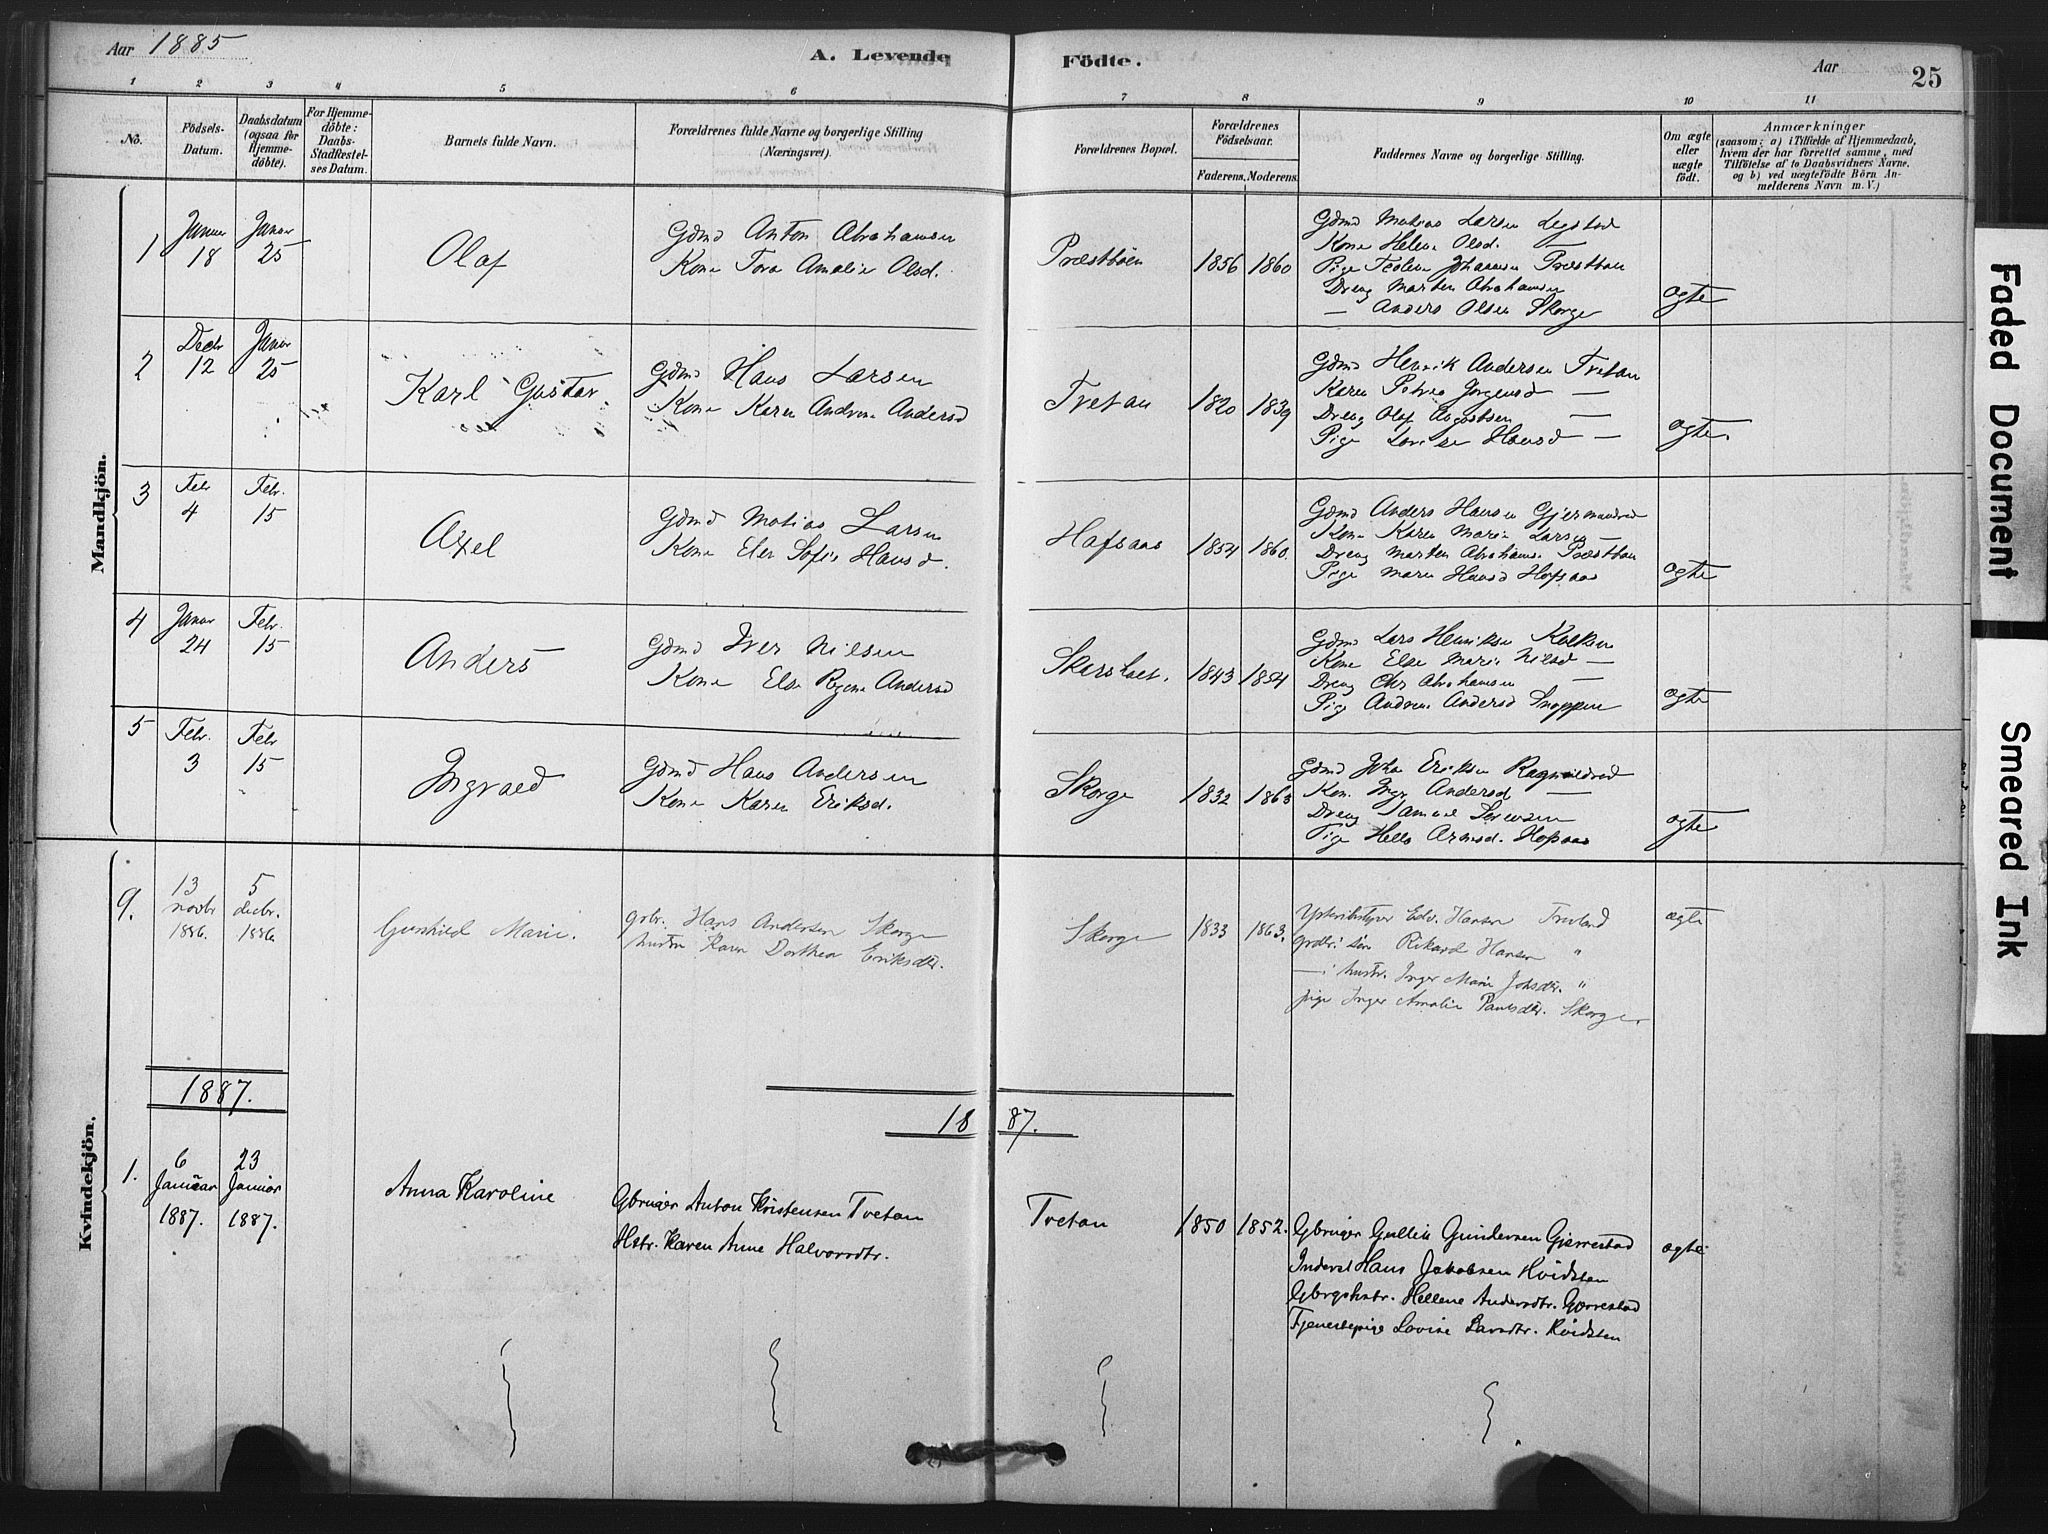 Aar 1885
A. Levende Födte.
Aar
25
1 2 3 4 5 6 7 8 9 10 11
No.
Födsels-Datum.
Daabsdatum (ogsaa for Hjemmedöbte).
For Hjemmedöbte: Daabs-Stadfæstelses Datum.
Barnets fulde Navn.
Forældrenes fulde Navne og borgerlige Stilling (Næringsvei).
Forældrenes Bopæl.
Forældrenes Födselsaar.
Faderens. Moderens.
Faddernes Navne og borgerlige Stilling.
Om ægte eller uægte födt.
Anmærkninger
(saasom: a) i Tilfælde af Hjemmedaab, hvem der har forrettet samme, med Tilföielse af to Daabsvidners Navne, og b) ved uægtefödte Börn Anmelderens Navn m. V.)
Mandkjön.
1 Januar 18 Januar 25
Olaf
Gdmd Anton Abrahamsen
Kone Tora Amalie Olsd.
Præstbøen 1856 1860
Gdmd Matias Larsen
Kone Helene Olsd.
Pige Johannsen Præstbøen
Dreng Marten Abrahamsen
— Anders Olsen Skorge
ægte
2 Decbr 12 Januar 25
Karl Gustav.
Gdmd Hans Larsen
Kone Karen Andrine Andersd
Tvetan 1820 1839
Gdmd Henrik Andersen Tvetan
Karen Petrea Jørgensd —
Dreng Olaf —
Pige Lovise Hansd —
ægte.
3 Febr 4 Febr. 15
Axel
Gdmd Matias Larsen
Kone Else Sofie Hansd.
Hafsaas 1854 1860.
Gdmd Anders Hansen
Kone Karen Marie Larsen —
Dreng Marten Abrahams. Præstbøen
Pige Maren Hansd Hafsaas
ægte
4 Januar 24 Febr. 15
Anders
Gdmd Iver Nilsen
Kone Else Regine Andersd
1843 1854
Gdmd Lars Henriksen
Kone Else Marie Nilsd —
Dreng Chr Abrahamsen —
Pige Andrine Andersd
ægte
5 Febr. 3 Febr 15
Ingvald
Gdmd Hans Andersen
Kone Karen Eriksd.
Skorge 1832 1863
Gdmd Johan Eriksen
Kone Inger Andersd —
Dreng Samuel Sørensen
Pige Helle Hafsaas
ægte
Kvindekjön.
9. 13 novbr 1886. 5 decbr. 1886
Gunhild Marie.
grbr. Hans Andersen Skorge
hustru Karen Dorthea Eriksdtr.
Skorge 1833 1863.
Edv. Hansen
søn Rikard Hansen "
— hustr. Inger Marie "
pige Inger Amalie Paulsdtr. Skorge.
ægte
1887.
18 87.
1. 6 Januar 1887. 23 Januar 1887.
Anna Karoline
Gbruger Anton Kristensen Tvetan
Hstr. Karen Anne Halvorsdtr.
Tvetan 1850 1852.
Gbruger Gullik Gundersen Gjerrestad
Inderst Hans Jakobsen Kvidsten
Gbrgshstr. Hellene Andersdtr. Gjerrestad
Tjenestepige Lovise Larsdtr. Kvidsten
ægte
Faded Document
Smeared Ink